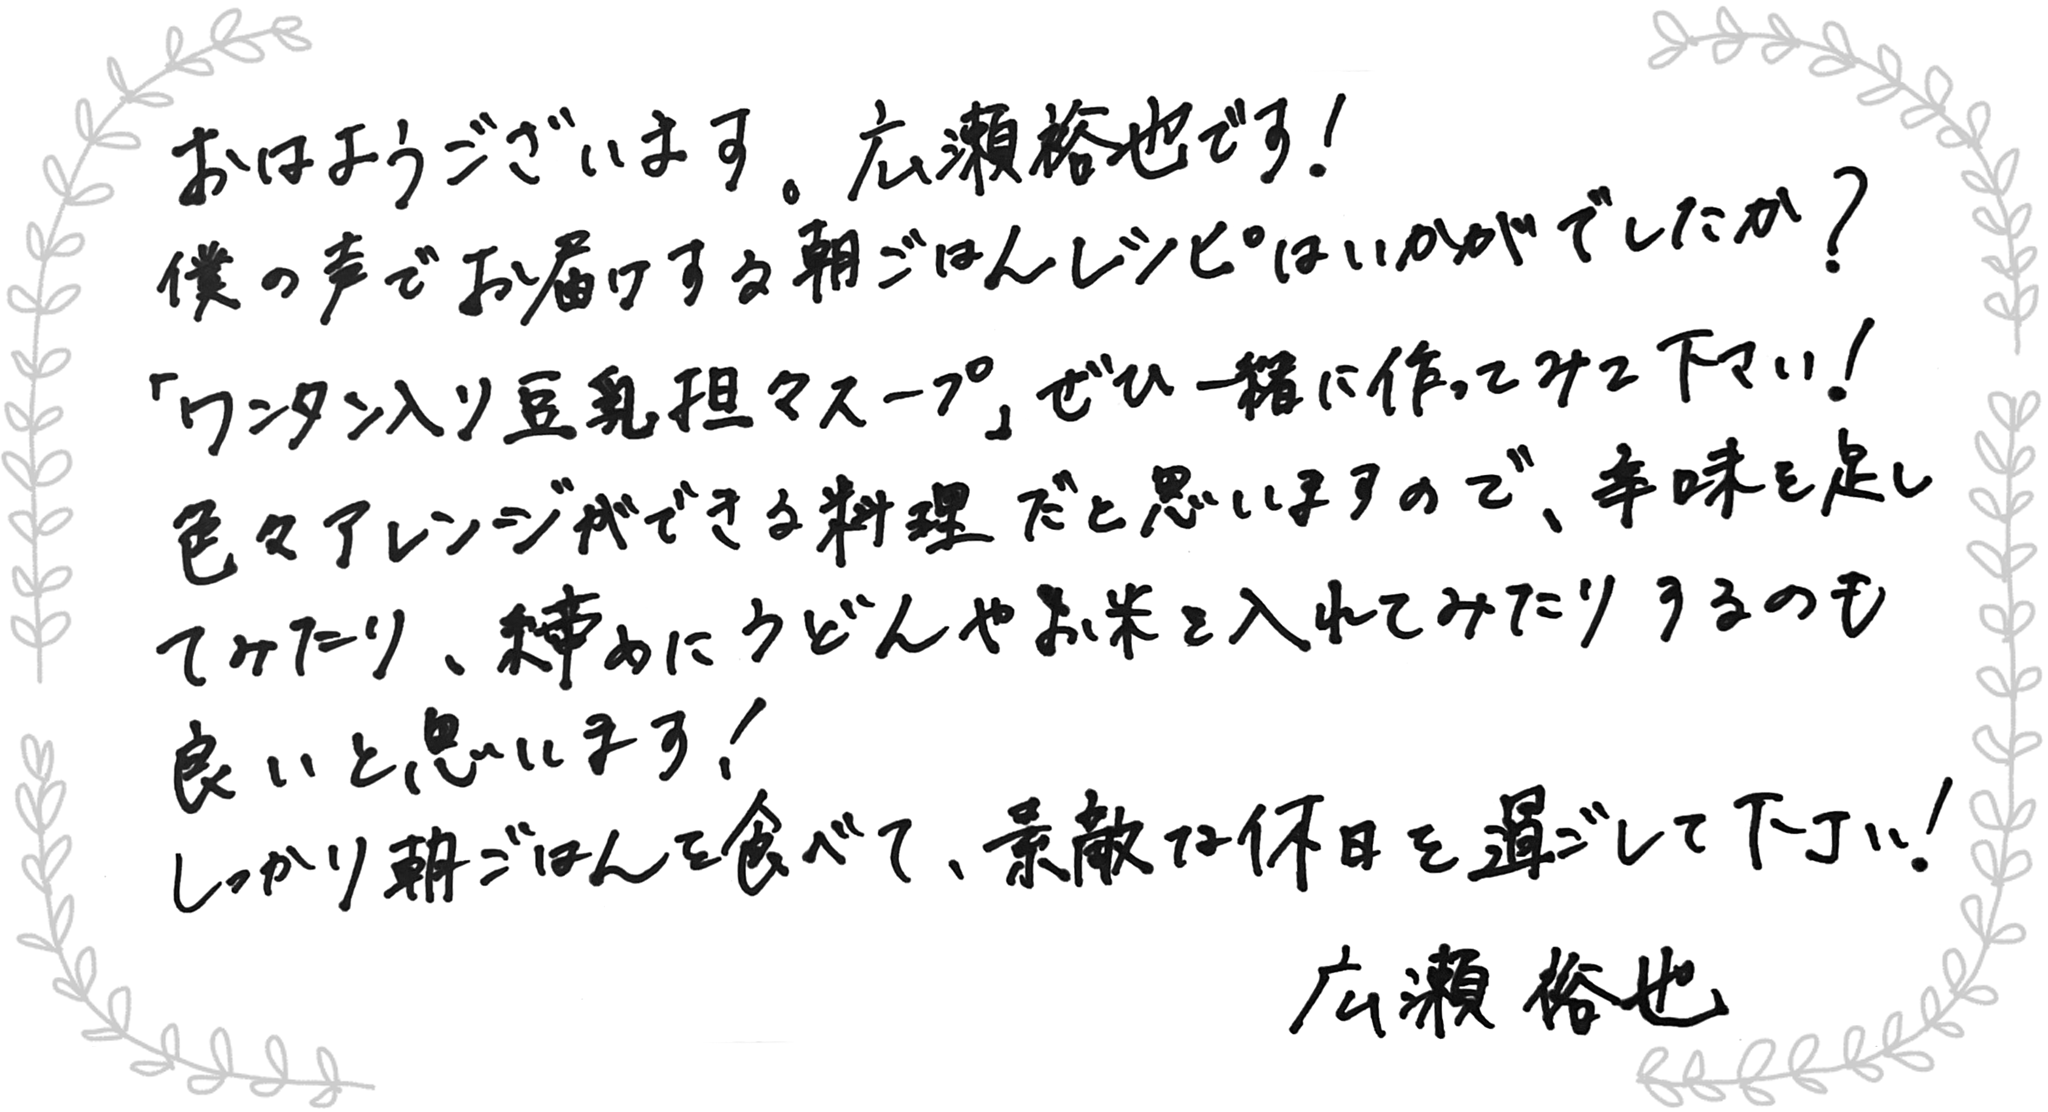 おはようございます。広瀬裕也です!
僕の声でお届けする朝ごはんレシピはいかがでしたか?
「ワンタン入り豆乳担々スープ」ぜひ一緒に作ってみて下さい!
色々アレンジができる料理だと思いますので、辛味を足し
てみたり、締めにうどんやお米を入れてみたりするのも
良いと思います!
しっかり朝ごはんを食べて、素敵な休日を過ごして下さい!
広瀬裕也